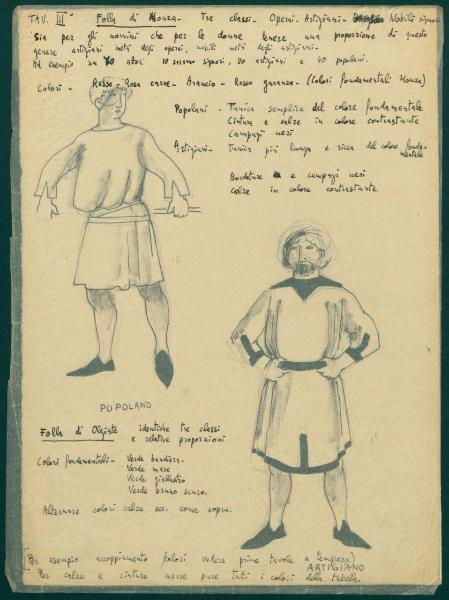 TAV. III° Folla di Monza - Tre classi - Operai, Artigiani - Nobili signori
Sia per gli uomini che per le donne tenere una proporzione di questo
genere artigiani metà degli operai, nobili metà degli artigiani.
Ad esempio su 70 attori 10 saranno signori, 20 artigiani e 40 popolani.
Colori - Rosso - Rosa carne - Arancio - Rosso garanza - (Colori fondamentali Monza)
Popolani - Tunica semplice del colore fondamentale
Cintura e calze in colore contrastante
Campagi neri
Artigiani - Tunica più lunga e ricca del colore fonda-
mentale
Bordature e campagi neri
Calze in colore contrastante
POPOLANO
Folla di Olgiate identiche tre classi
e relative proporzioni
Colori fondamentali - Verde bandiera
Verde mare
Verde giallastro
Verde bruno scuro.
Alternare colori calze ecc. come sopra.
(Per esempio accoppiamento colori vedere prime tavole a tempera)
ARTIGIANO
Per calze e cinture usare pure tutti i colori della tabella.